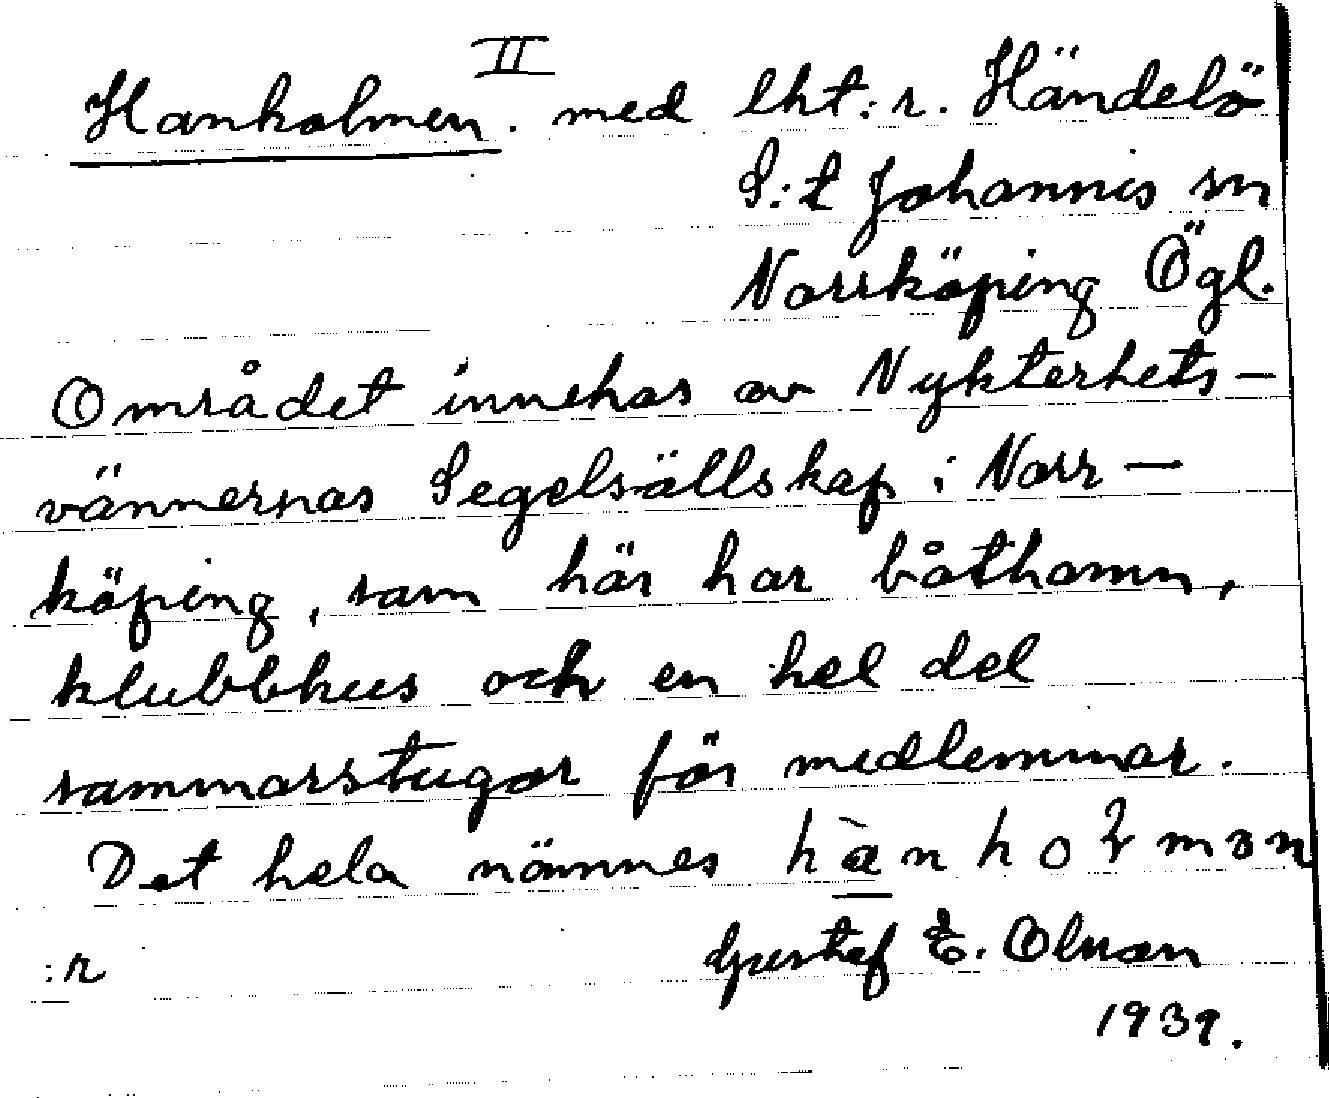 Hanholmen II. med lht: r. Händelö
S:t Johannis sn
Norrköping Ögl.
Området innehas av Nykterhets-
vännernas Segelsällskap i Norr-
köping, som här har båthamn,
klubbhus och en hel del
sommarstugor för medlemmar.
Det hela nämnes hànhoɫmən
:r Gustaf E. Olsson
1939.